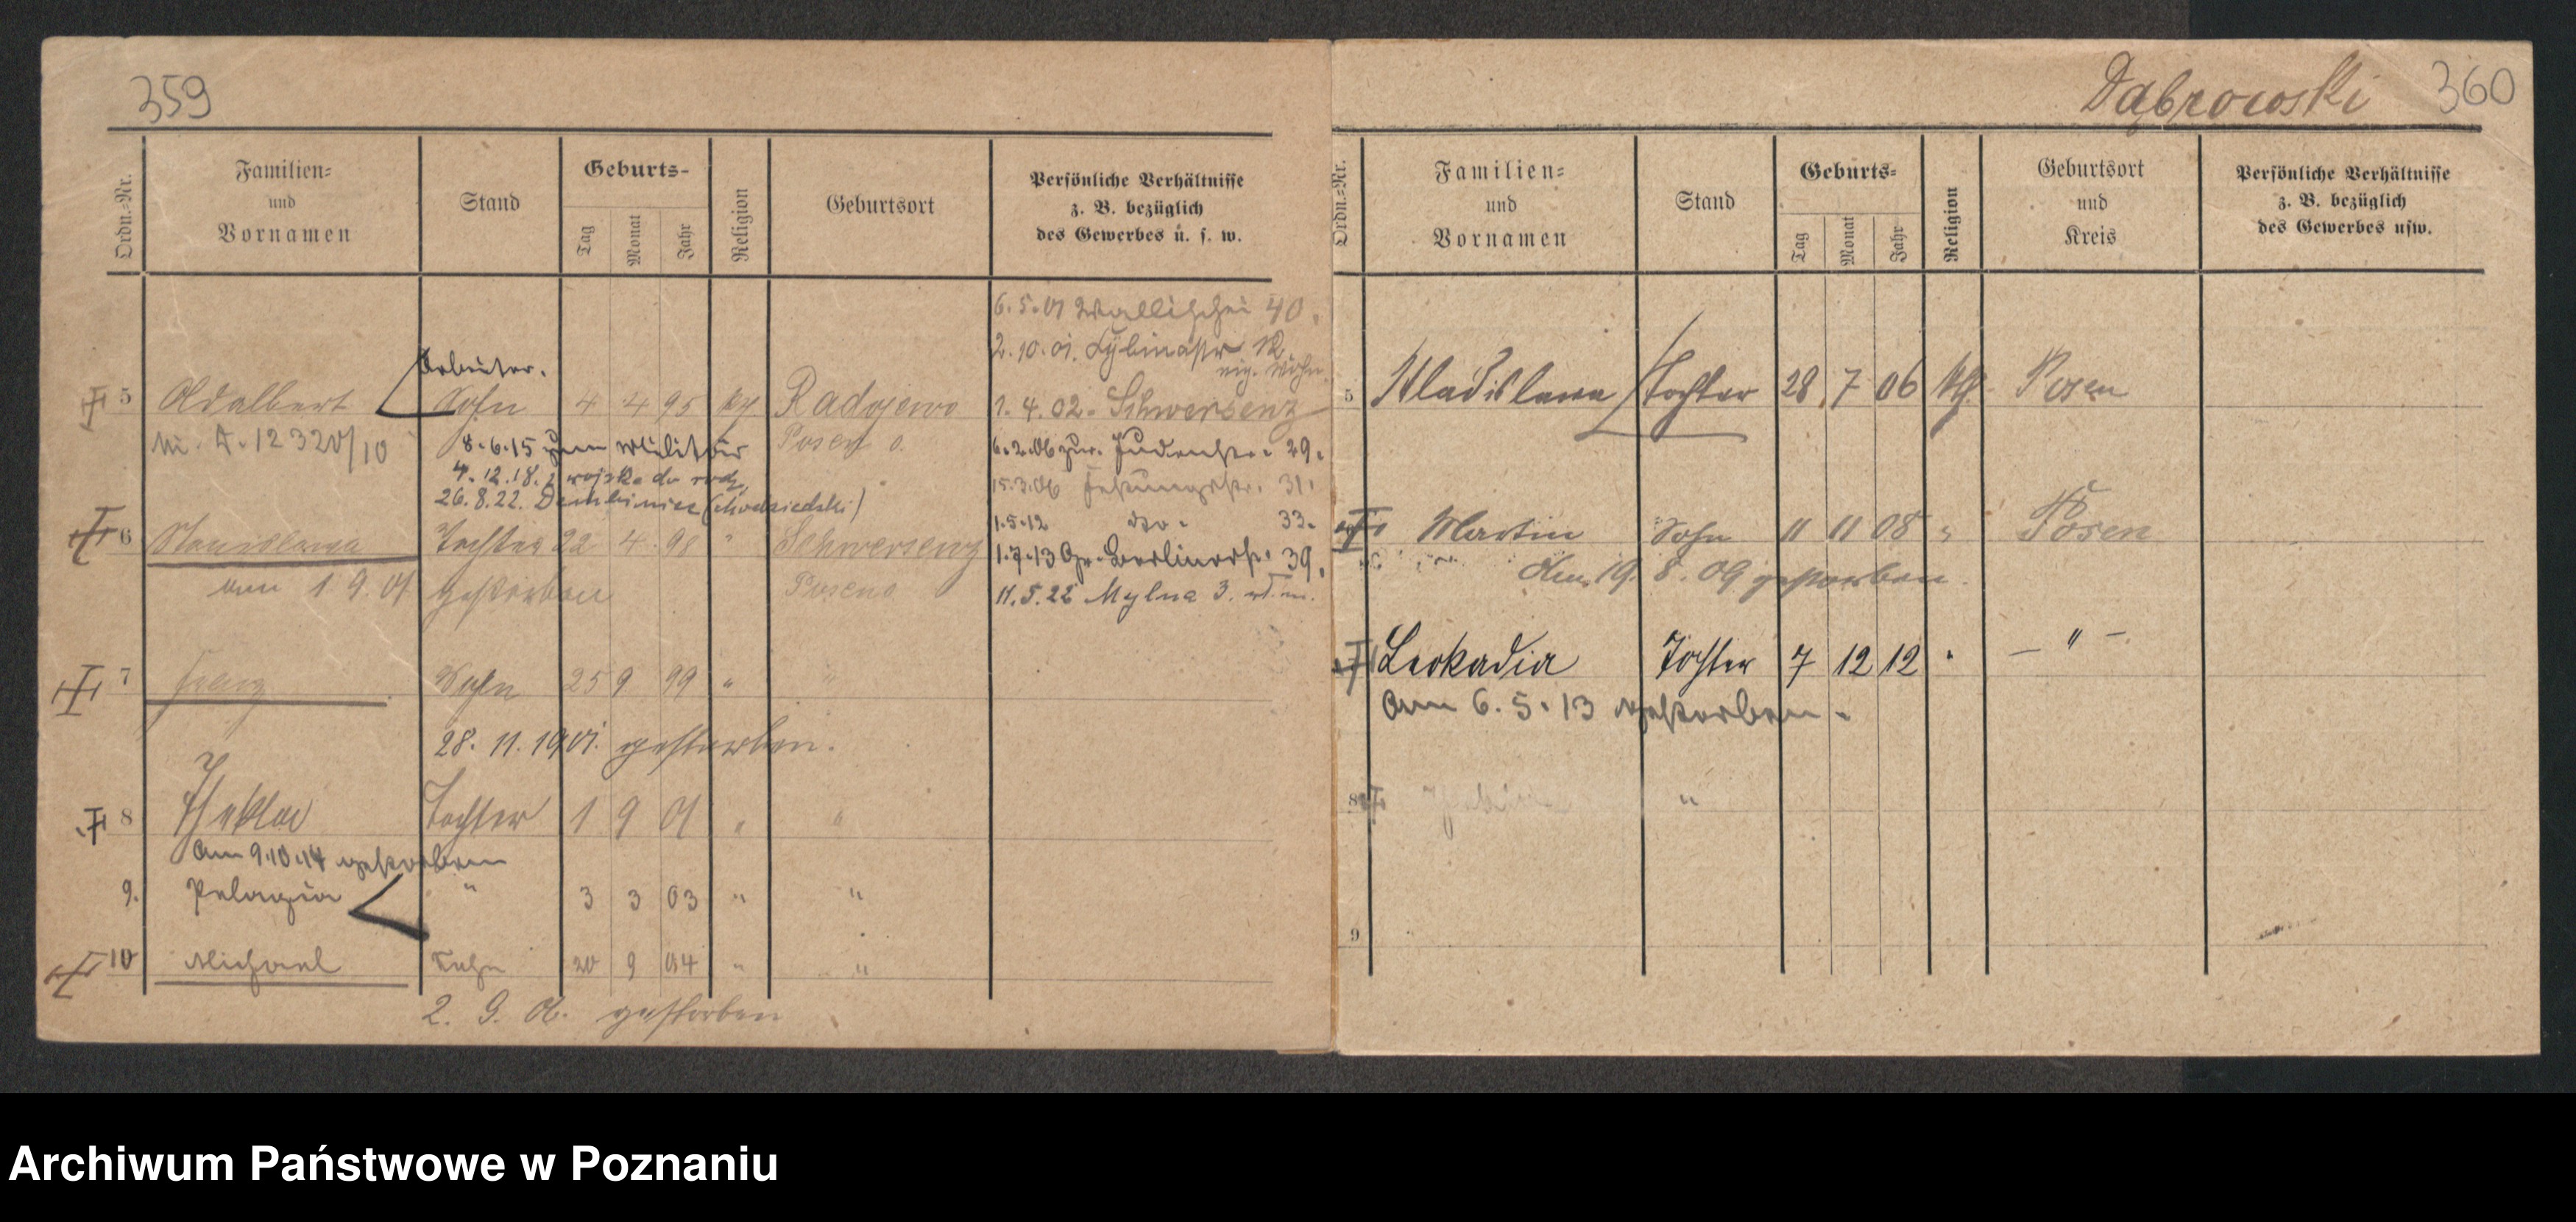 359
Ordn.-Nr.
Familien-
und
Vornamen
Stand
Geburts-
Tag
Monat
Jahr
Religion
Geburtsort
Persönliche Verhältnisse
z. B. bezüglich
des Gewerbes u. s. w.
6. 5. 01 Wallischei 40.
2. 10. 01. Cybinastr 12
Arbeiter.
5 Adalbert Sohn 4 4 95 Radojewo
1. 4. 02. Schwersenz
A. 12320/10
8. 6. 15 zum Militär
Posen o.
6. 2. 06 zur. Judenstr. 29.
4. 12. 18. z wojska do rodz.
15. 3. 06 31.
26. 8. 22.
1. 5. 12 do. 33.
6 Stanislawa Tochter 22 4 98 " Schwersenz
1. 7. 13 Gr. Berlinerstr. 39.
am 1. 9. 01 gestorben
Posen o
11. 5. 22 Mylna 3.
7 Franz Sohn 25 9 99 " "
28. 11. 1901. gestorben.
8 Thekla Tochter 1 9 01 " "
Am 9.10.14 gestorben
9. Pelagia " 3 3 03 " "
10 Michael Sohn 20 9 04 " "
2. 9. 06. gestorben
Dąbrowski 360
Ordn.-Nr.
Familien-
und
Vornamen
Stand
Geburts-
Tag
Monat
Jahr
Religion
Geburtsort
und
Kreis
Persönliche Verhältnisse
z. B. bezüglich
des Gewerbes usw.
5 Wladislawa Tochter 28 7 06 kth. Posen
Martin Sohn 11 11 08 " Posen
Am 19. 8. 09 gestorben.
Leokadia Tochter 7 12 12 " — " —
Am 6. 5. 13 gestorben.
8 "
9
Archiwum Państwowe w Poznaniu